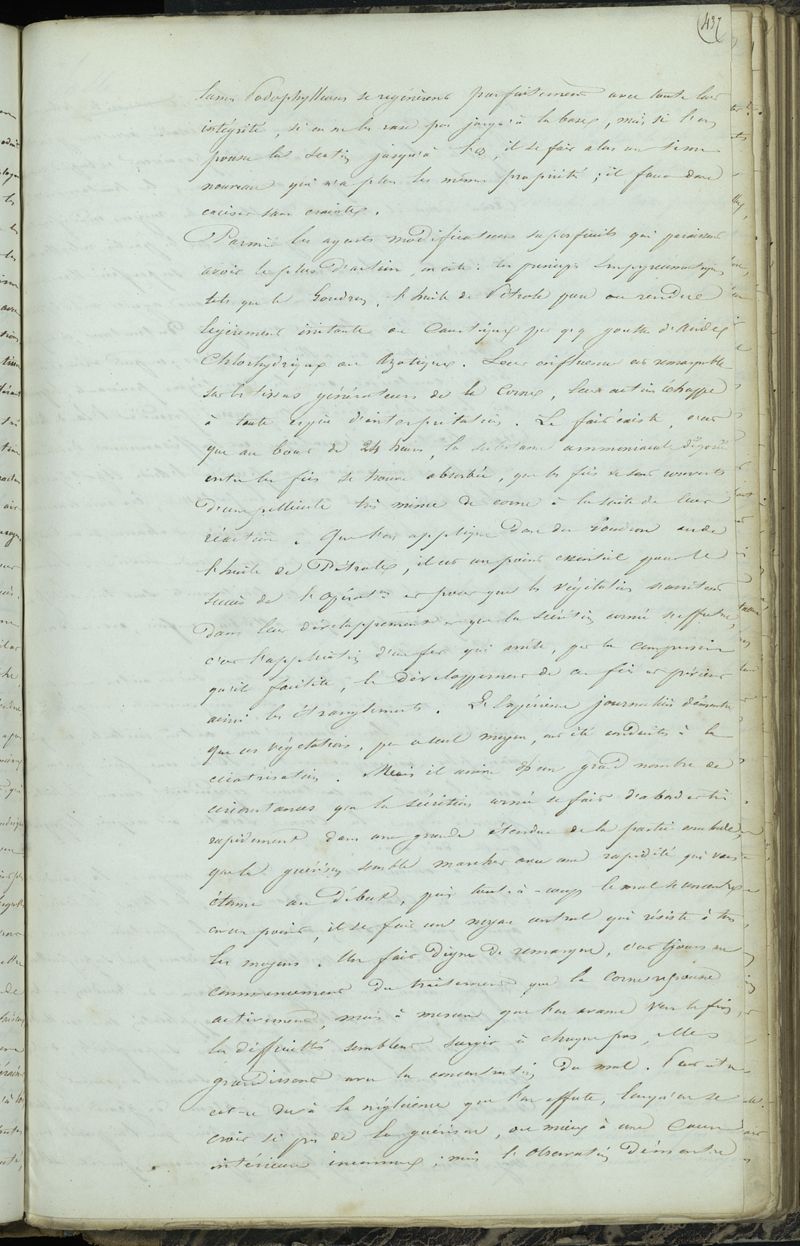 437
lames Podophylleuses se régénèrent parfaitement avec toute leur
intégrité, si on ne les rase pas jusqu'à la base, mais si l'on
pousse la section jusqu'à l'os, il se fait alors un tissu
nouveau qui n'a plus les mêmes propriétés ; il faut donc
exciser sans crainte.
Parmi les agents modificateurs superficiels qui paraissent
avoir le plus d'action, on cite : les principes Empyreumatiques
tels que le Goudron, l'huile de Pétrole que on rendre
légèrement irritante ou Caustique par qq gouttes d'Acides
Chlorhydrique ou Azotique. Leur influence est remarquable
sur les tissus générateurs de la Corne, leur action échappe
à toute espèce d'interprétation. Le fait existe, c'est
que au bout de 24 heures, la substance ammoniacale déposée
entre les fics se trouve absorbée, que les fics se sont couverts
d'une pellicule très mince de corne à la suite de leur
réaction. Que l'on applique donc du Goudron ou de
l'huile de Pétrole, il est un point essentiel pour le
succès de l'opérat.on et pour que les végétations s'arrêtent
dans leur développement et que la sécrétion cornée s'effectue,
c'est l'application d'un fer qui arrête, par la compression
qu'il facilite, le développement de ces fics et prévient
ainsi les étranglements. L'Expérience journalière démontre
que ces végétations, par ce seul moyen, ont été conduites à la
cicatrisation. Mais il arrive dans un grand nombre de
circonstances que la sécrétion cornée se fait d'abord très
rapidement dans une grande étendue de la partie malade,
que la guérison semble marcher avec une rapidité qui vous
étonne au début, puis tout-à-coup le mal se concentre
en un point, il se fait un noyau central qui résiste à tous
les moyens. Un fait digne de remarque, c'est toujours au
commencement du traitement que la corne repousse
activement, mais à mesure que l'on avance vers la fin,
les difficultés semblent surgir à chaque pas, elles
grandissent avec la concentration du mal. Peut-être
est-ce dû à la négligence que l'on affecte, lorsqu'on se
croit si près de la guérison, ou mieux à une Cause
intérieure inconnue ; mais l'observation démontre